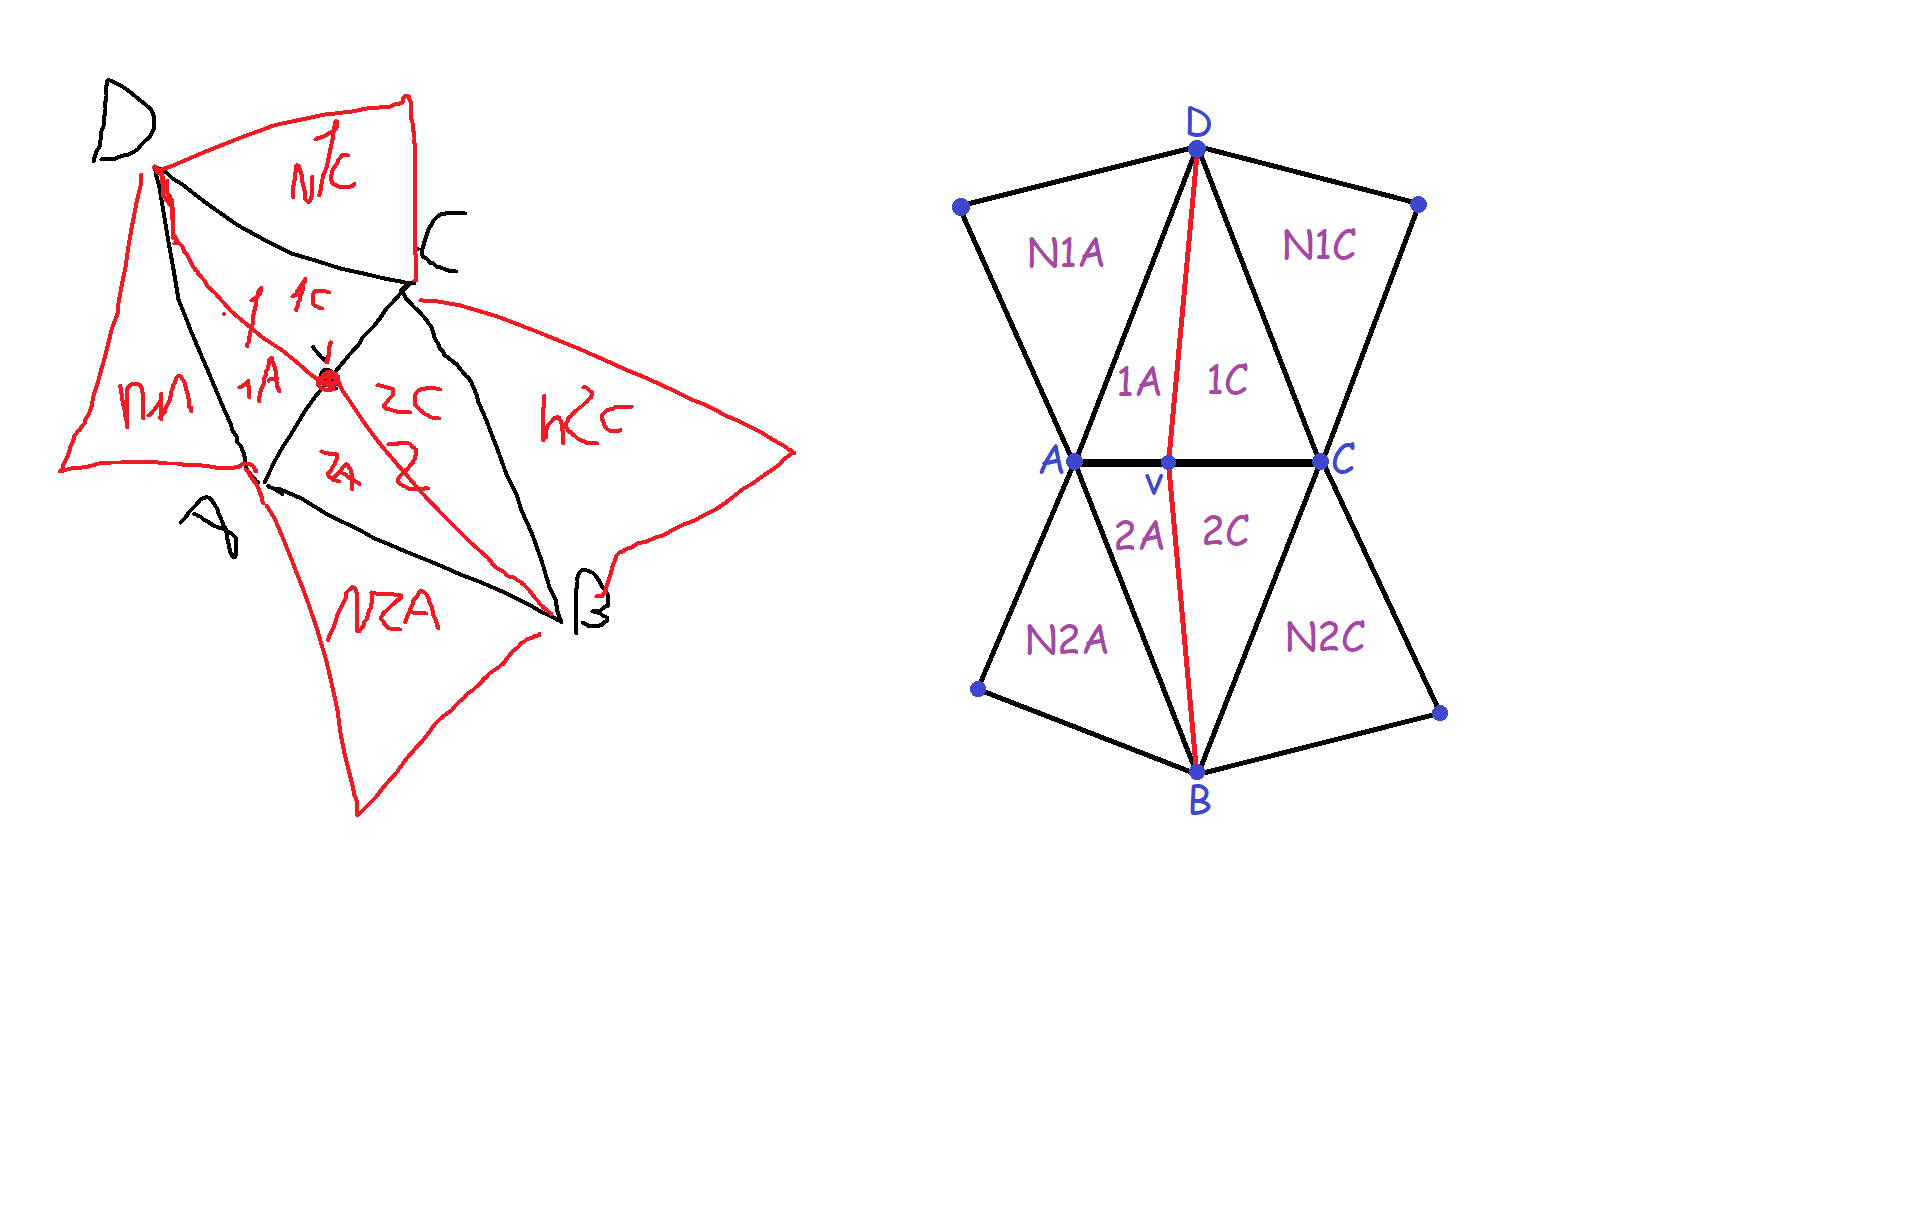 D
N1C
C
1
1C
v
1A
2C
N2C
2A
2
A
N2A
B
D
N1A
N1C
1A
1C
A
C
v
2A
2C
N2A
N2C
B